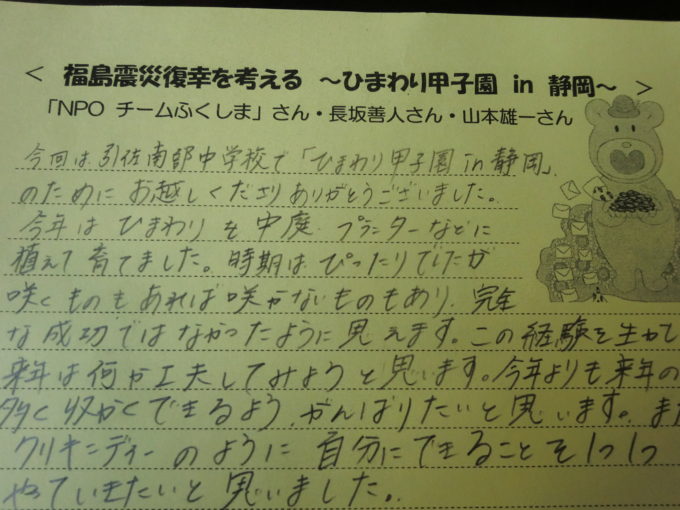 ＜ 福島震災復幸を考える ～ひまわり甲子園 in 静岡～ ＞
「NPO チームふくしま」さん・長坂善人さん・山本雄一さん
今回は引佐南部中学校で「ひまわり甲子園in静岡」
のためにお越しくださりありがとうございました。
今年はひまわりを中庭、プランターなどに
植えて育てました。時期はぴったりでしたが
咲くものもあれば咲かないものもあり、完全
な成功ではなかったように見えます。この経験を生かして
来年は何か工夫してみようと思います。今年よりも来年の
多く収かくできるよう、がんばりたいと思います。また
クリキンディーのように自分にできることを1つ1つ
やっていきたいと思いました。